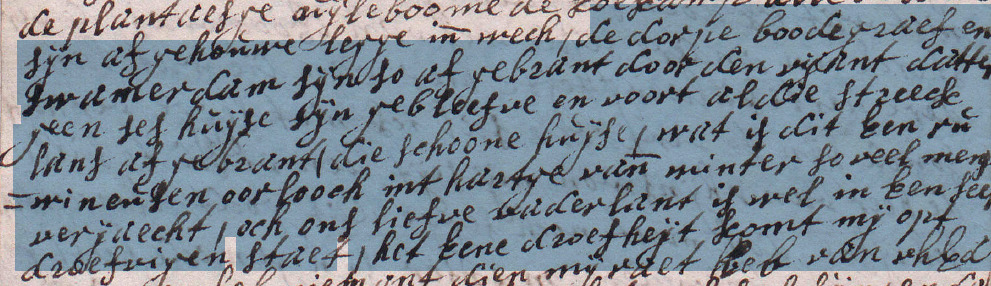 de plantaesge uijleboome de koekamp alle
sijn af gehouwe legge in̅ wech, de dorpe boodegraef en
swamerdam sijn so af gebrant door den vijant datter
geen ses huijse sijn gebleefve en voort al die streeck
lans af gebrant, die schoone huijse, wat is dit een ru
wineusen oorlooch int hartge van̅ winter so veel mens
verjaecht, och ons liefve vaderlant is wel in een seer
droefvigen staet, het eene droefheijt komt mij op
niemant dien mij raet